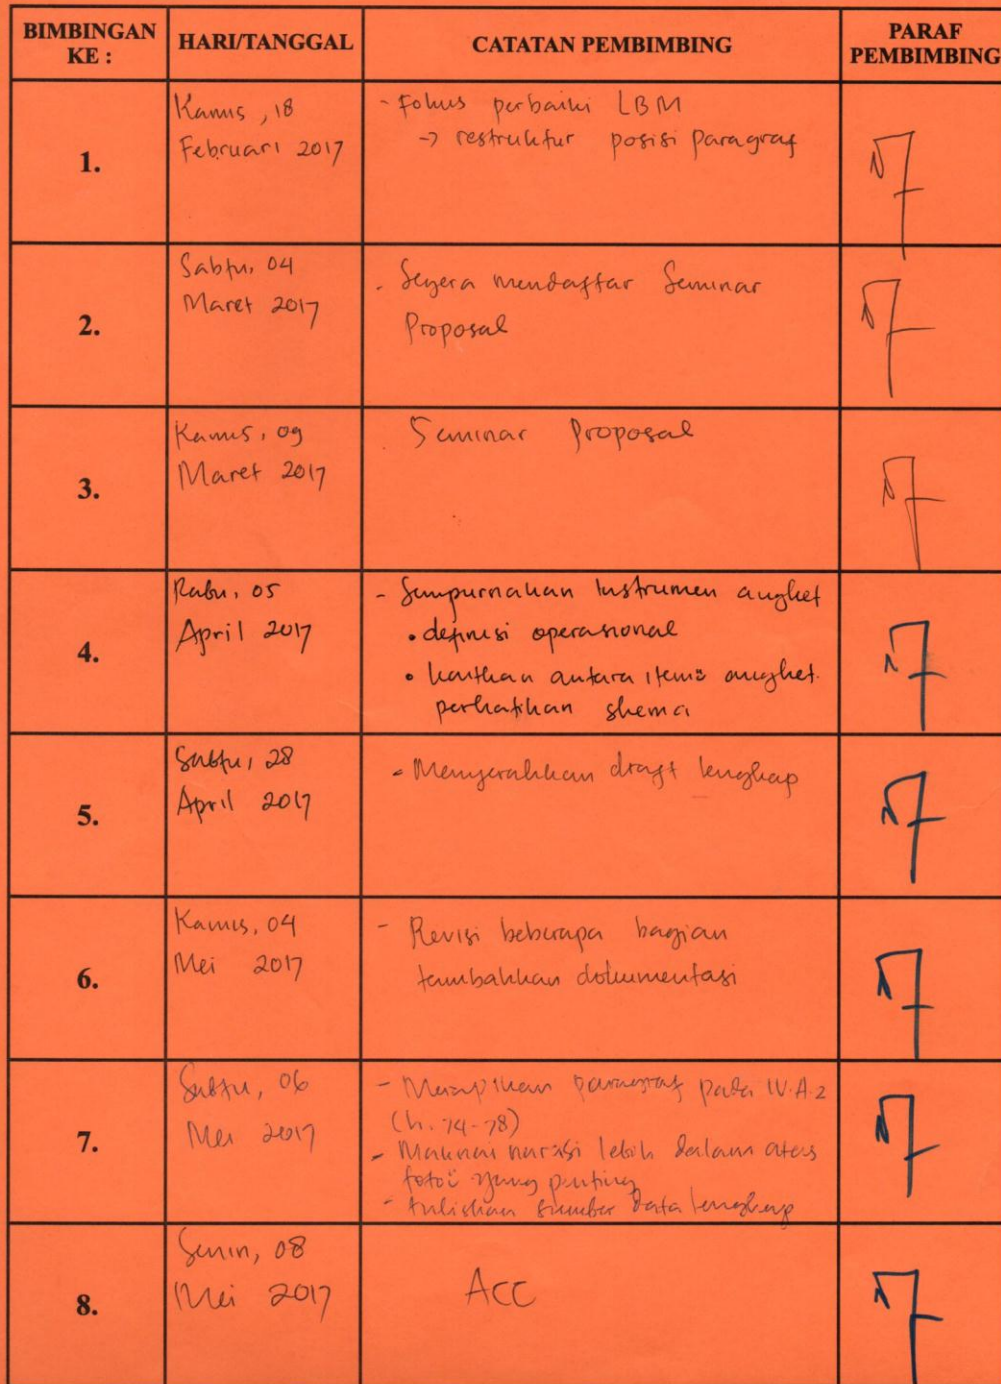 BIMBINGAN KE :
HARI/TANGGAL
CATATAN PEMBIMBING
PARAF PEMBIMBING
1.
Kamis, 18
Februari 2017
- Fokus perbaiki LBM
→ restruktur posisi paragraf
2.
Sabtu, 04
Maret 2017
- Segera mendaftar Seminar
Proposal
3.
Kamis, 09
Maret 2017
Seminar Proposal
4.
Rabu, 05
April 2017
- Sempurnakan Instrumen angket
• definisi operasional
• kaitkan antara item² angket.
perhatikan skema
5.
Sabtu, 28
April 2017
- Menyerahkan draft lengkap
6.
Kamis, 04
Mei 2017
- Revisi beberapa bagian
tambahkan dokumentasi
7.
Sabtu, 06
Mei 2017
- Merapikan paragraf pada IV.A.2
(h. 74-78)
- Maknai narasi lebih dalam atas
foto² yang penting
- tuliskan sumber data lengkap
8.
Senin, 08
Mei 2017
ACC